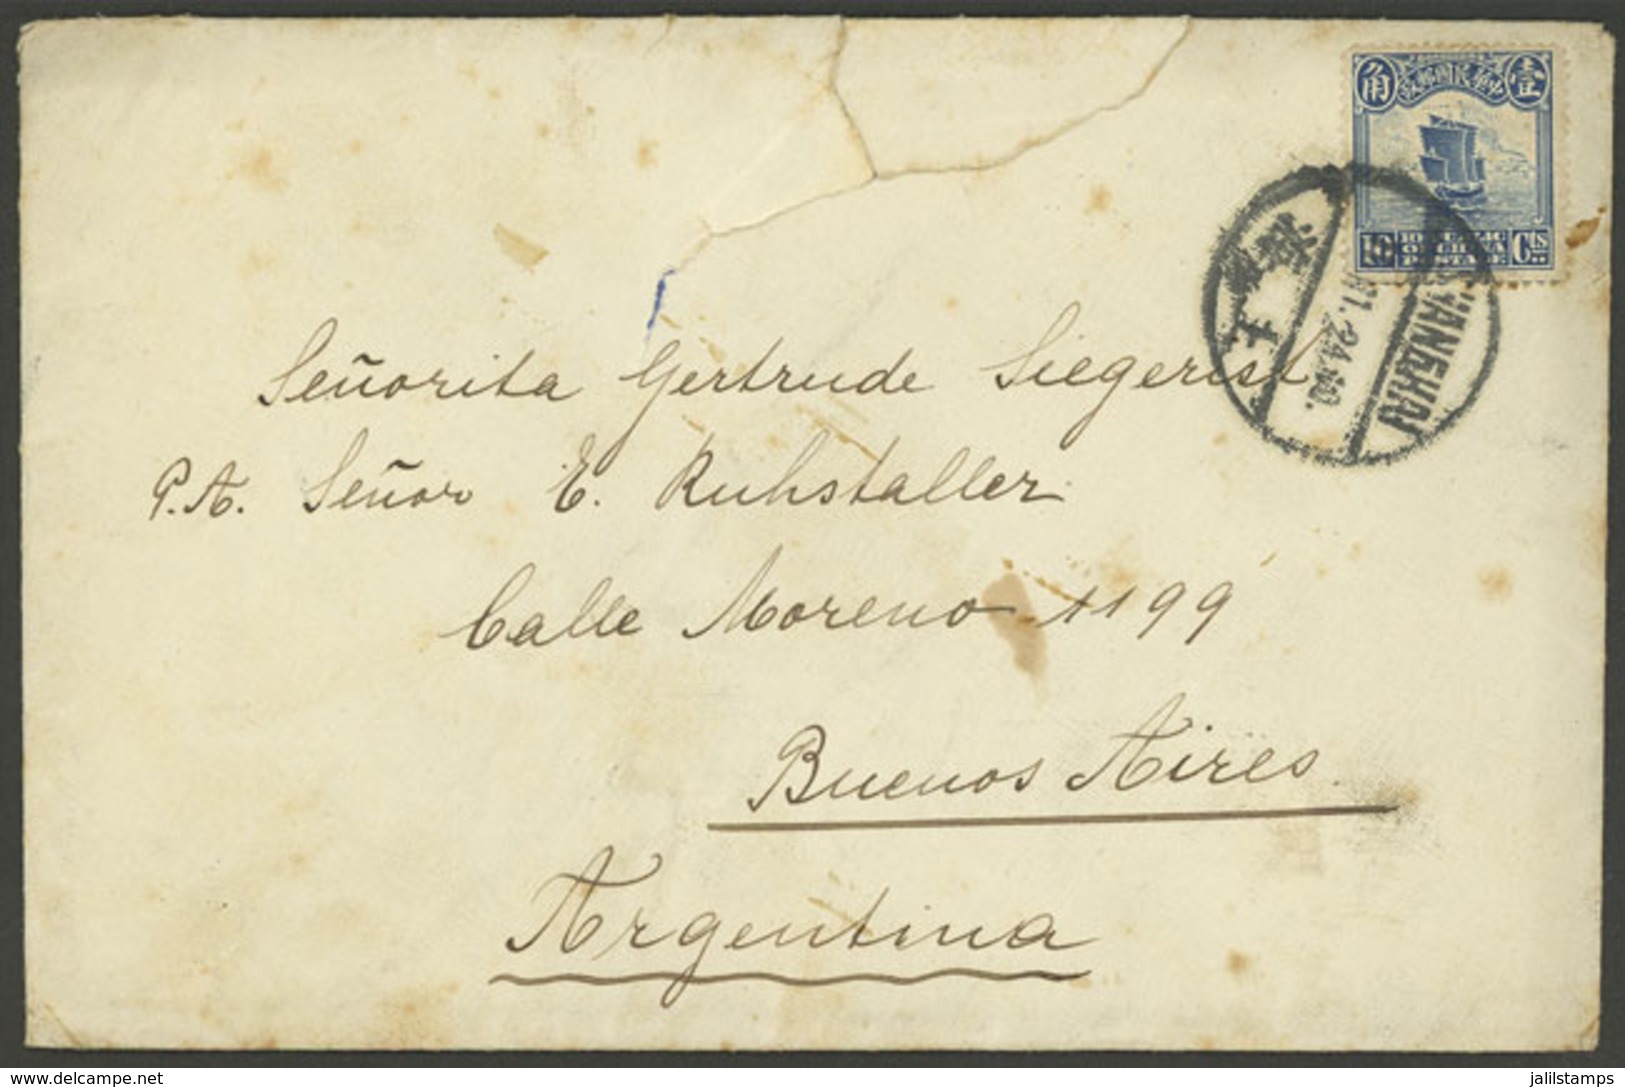 角 中華民國郵政 壹
10 REPUBLIC OF CHINA POSTAGE Cts
上海
SHANGHAI
Señorita Gertrude Siegerist,
P.A. Señor E. Ruhstaller
Calle Moreno 1199
Buenos Aires
Argentina
delcampe.net
jalilstamps